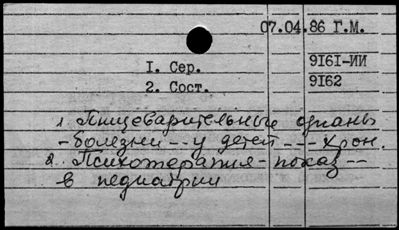 07.04.86 Г.М.
1. Сер. 9161-ИИ
2. Сост. 9162
1. Пищеварительные органы
- болезни -- у детей --- хрон.
2. Психотерапия - показ --
в педиатрии